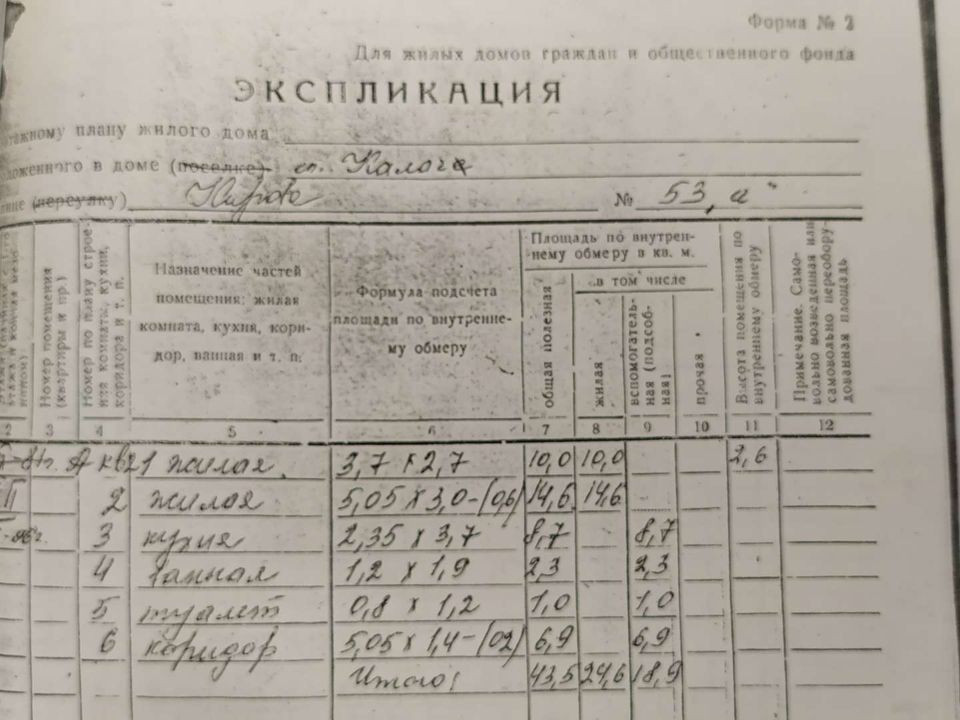 Форма № 2
Для жилых домов граждан и общественного фонда
ЭКСПЛИКАЦИЯ
тажному плану жилого дома
ложенного в доме (поселке) ст. Калоча
лице (переулку) Кирова № 53, а
Номер помещения (квартиры и пр.)
Номер по плану строения комнаты, кухни, коридора и т. п.
Назначение частей помещения: жилая комната, кухня, коридор, ванная и т. п.
Формула подсчета площади по внутреннему обмеру
Площадь по внутреннему обмеру в кв. м.
в том числе
общая полезная
жилая
вспомогательная (подсобная)
прочая
Высота помещения по внутреннему обмеру
Примечание. Самовольно возведенная или самовольно переоборудованная площадь
2 3 4 5 6 7 8 9 10 11 12
А кв2 1 жилая 3,7 х 2,7 10,0 10,0 2,6
II 2 жилая 5,05 х 3,0-(0,6) 14,6 14,6
3 кухня 2,35 х 3,7 8,7 8,7
4 ванная 1,2 х 1,9 2,3 2,3
5 туалет 0,8 х 1,2 1,0 1,0
6 коридор 5,05 х 1,4-(02) 6,9 6,9
Итого: 43,5 24,6 18,9